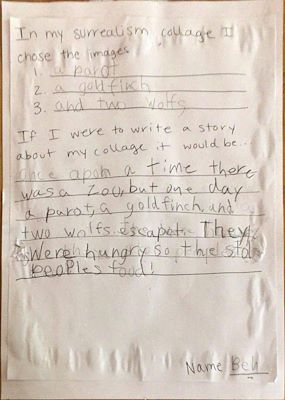 In my surrealism collage I
chose the images
1. a parot
2. a goldfinch
3. and two wolfs
If I were to write a story
about my collage it would be...
Once apon a time there
was a zoo, but one day
a parot, a goldfinch, and
two wolfs escapet. They
were hungry so they stol
peoples food!
Name Beh